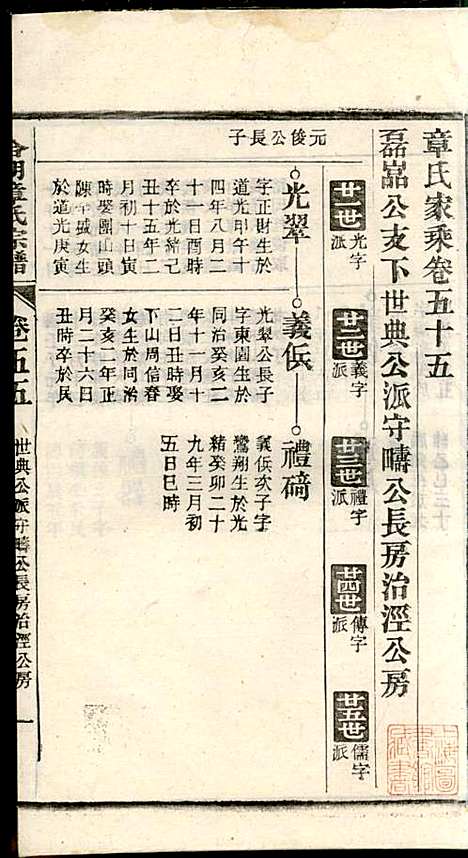 章氏家乘卷五十五
磊嵓公支下世典公派守疇公長房治溼公房
廿一世光字派
廿二世義字派
廿三世禮字派
廿四世傳字派
廿五世儒字派
元俊公長子
光翠
字正財生於
道光甲午十
四年八月二
十一日酉時
卒於光緒己
丑十五年二
月初十日寅
時娶團山頭
陳 盛女生
於道光庚寅
義伝
光翠公長子
字東園生於
同治癸亥二
年十一月十
二日丑時娶
下山周信春
女生於同治
癸亥二年正
月二十六日
丑時卒於民
禮碕
義伝次子字
鷺翔生於光
緒癸卯二十
九年三月初
五日巳時
章氏宗譜
卷五五
世典公派守疇公長房治溼公房
一